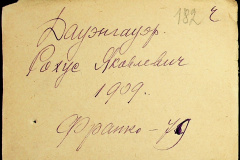 182 ч
Дауэнгауэр.
Рохус Яковлевич
1909.
Франко - 79